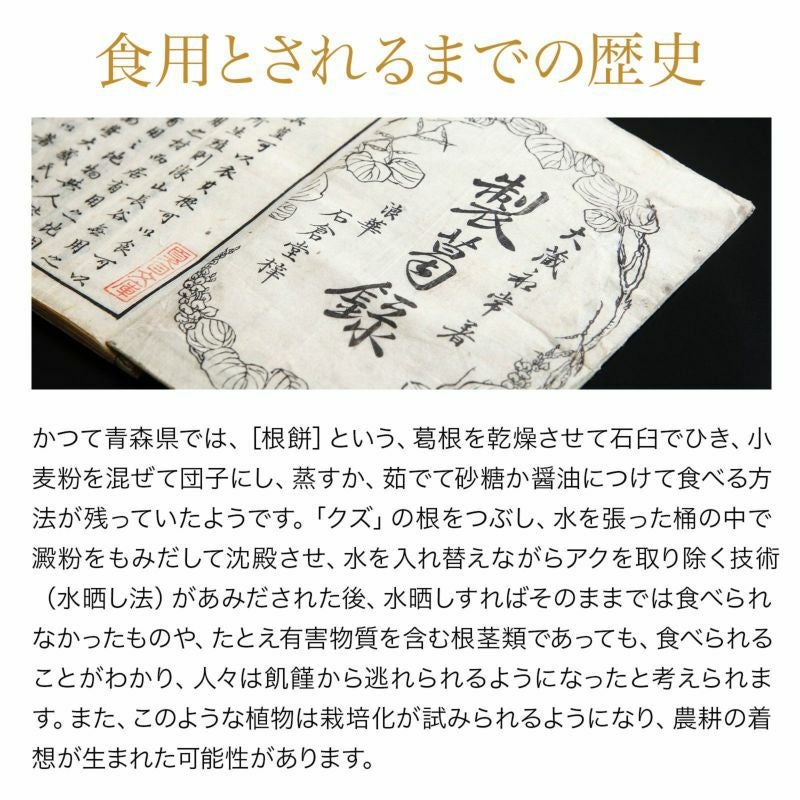 食用とされるまでの歴史
大蔵永常著
製葛録
浪華
石倉堂梓
かつて青森県では、［根餅］という、葛根を乾燥させて石臼でひき、小
麦粉を混ぜて団子にし、蒸すか、茹でて砂糖か醤油につけて食べる方
法が残っていたようです。「クズ」の根をつぶし、水を張った桶の中で
澱粉をもみだして沈殿させ、水を入れ替えながらアクを取り除く技術
（水晒し法）があみだされた後、水晒しすればそのままでは食べられ
なかったものや、たとえ有害物質を含む根茎類であっても、食べられる
ことがわかり、人々は飢饉から逃れられるようになったと考えられま
す。また、このような植物は栽培化が試みられるようになり、農耕の着
想が生まれた可能性があります。